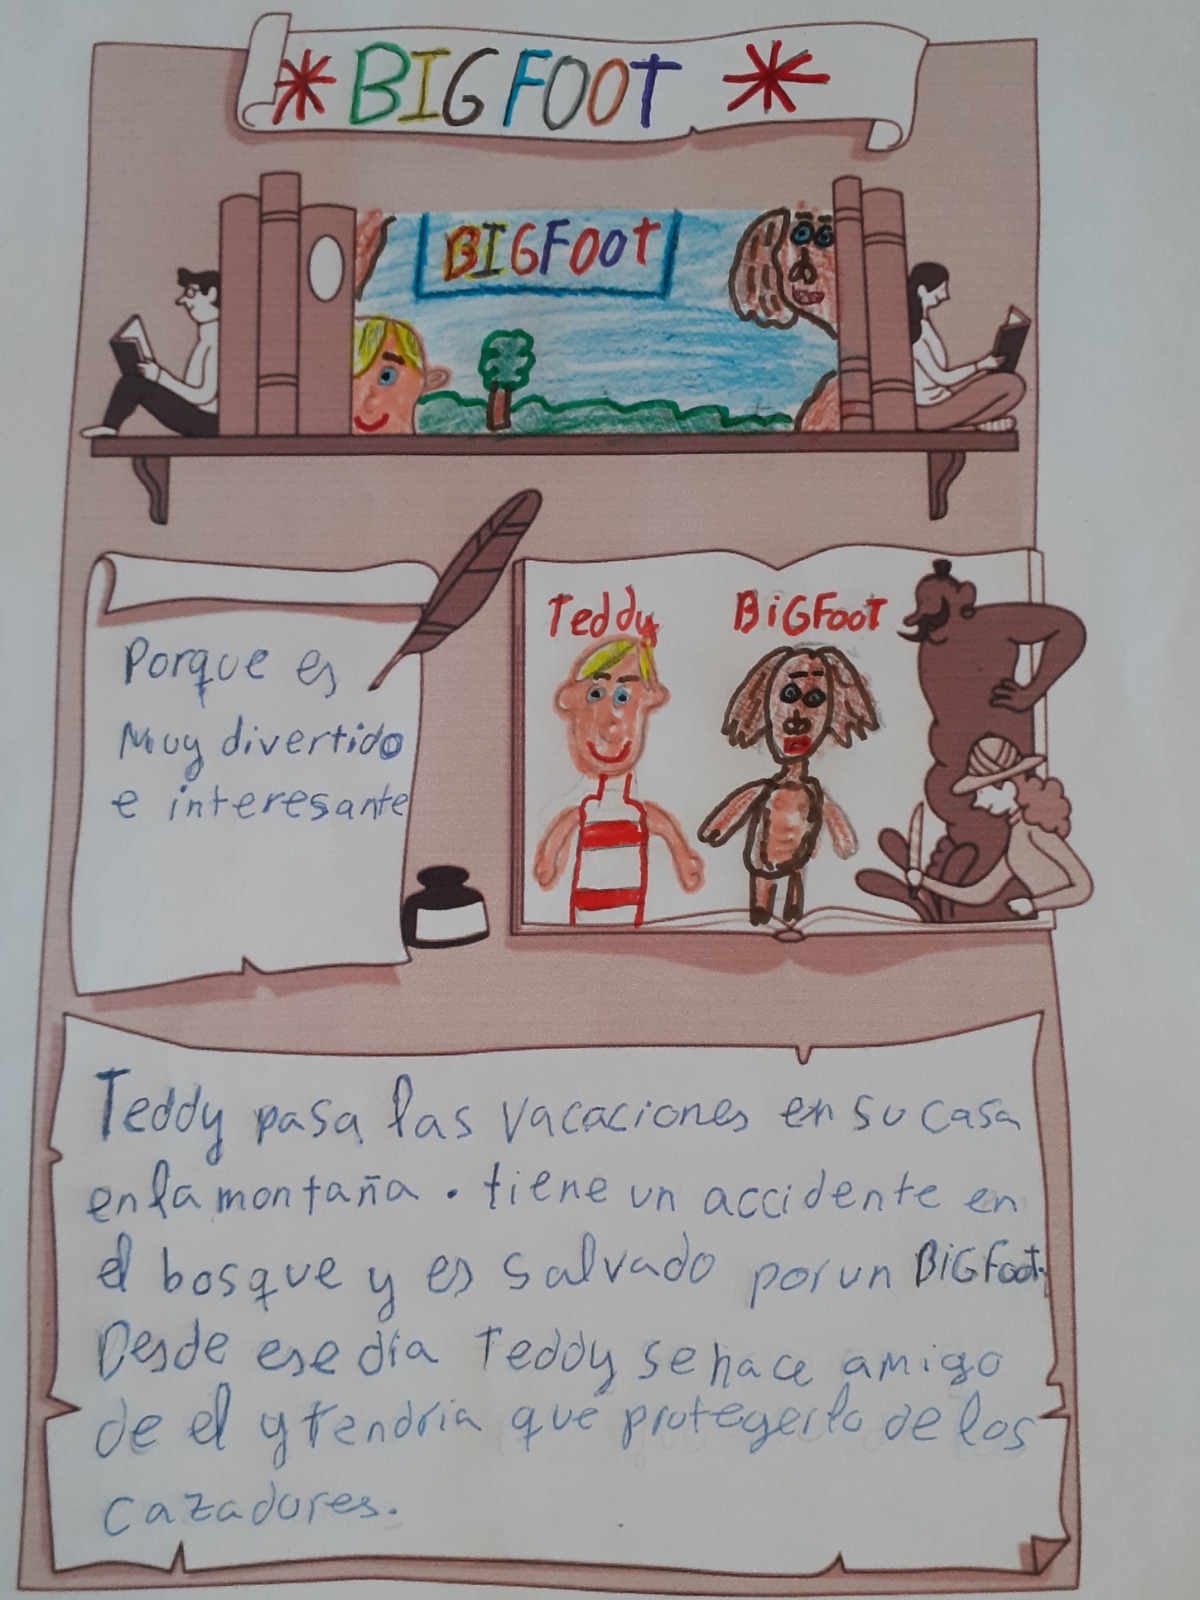 BIGFOOT
BIGFOOT
Porque es
Muy divertido
e interesante
Teddy BiGFooT
Teddy pasa las vacaciones en su casa
en la montaña. tiene un accidente en
el bosque y es salvado por un BiGFoot.
Desde ese día Teddy se hace amigo
de el y tendria que protegerlo de los
cazadores.